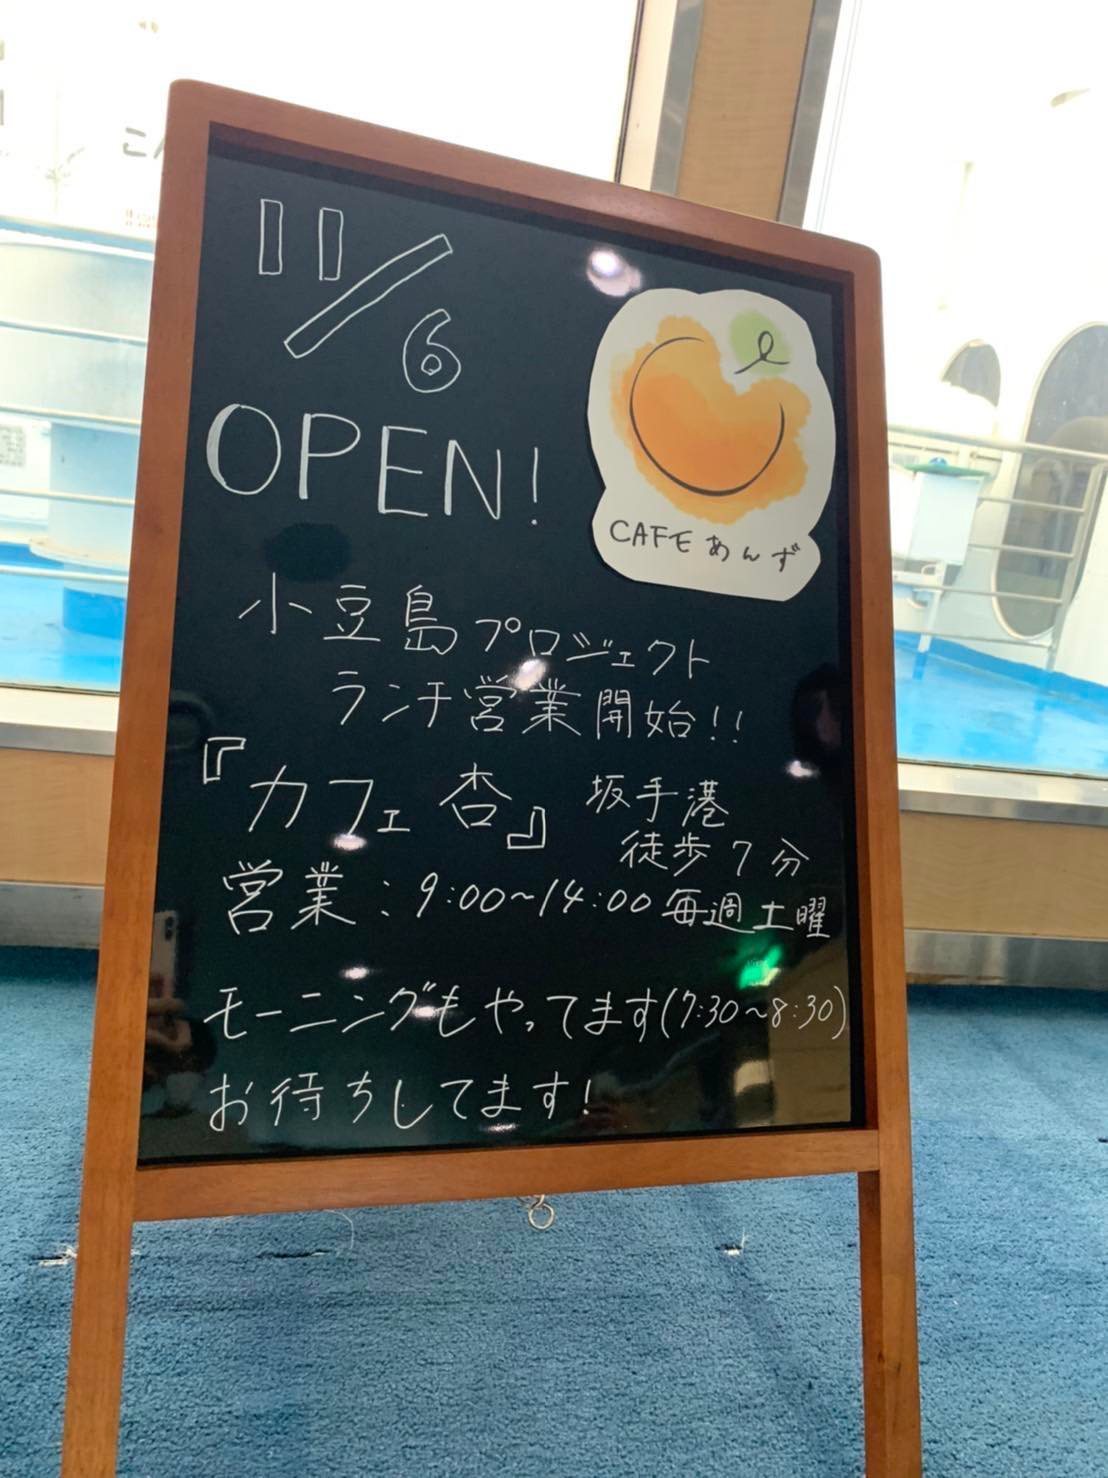 11/6
OPEN!
CAFE あんず
小豆島プロジェクト
ランチ営業開始!!
『カフェ 杏』
坂手港
徒歩7分
営業：9:00～14:00 毎週土曜
モーニングもやってます(7:30～8:30)
お待ちしてます！